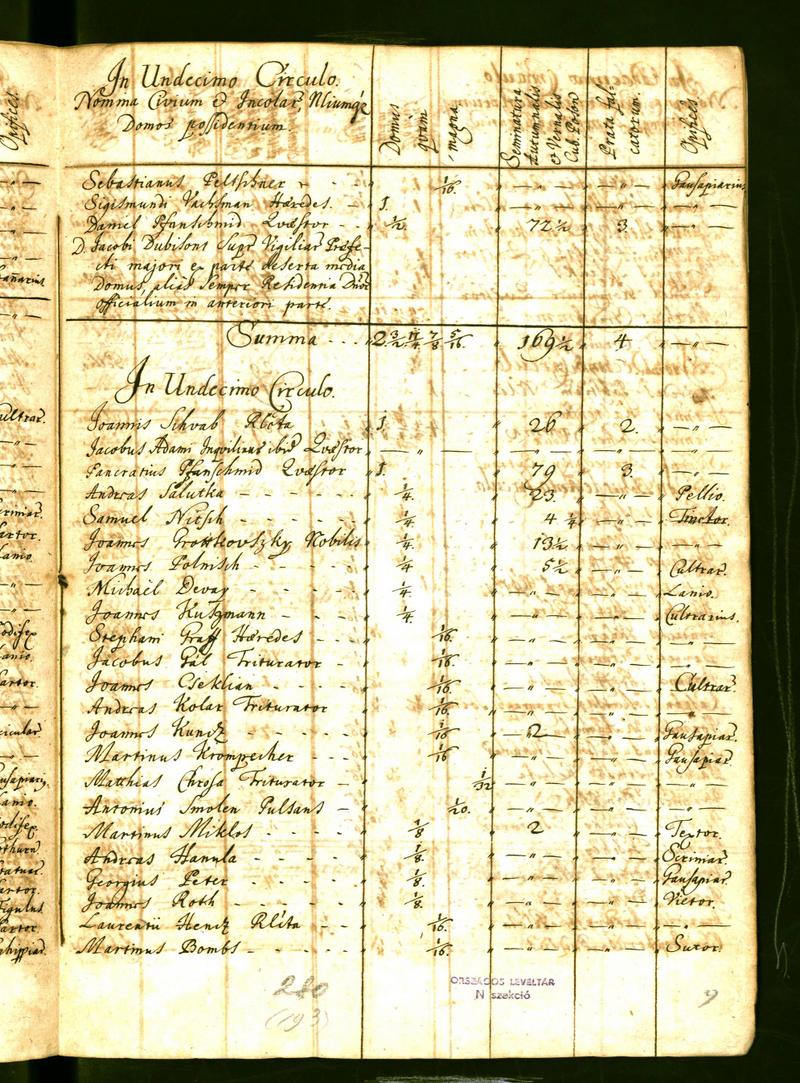 In Undecimo Circulo.
Nomina Civium & Incolar,
Domos possidentium.
Domus quam magna.
Seminatura Autumnalis & Vernalis Cub. Poson
Prata falcatorum.
Opifices
Sebastianus Peltschner - - " 1/16. " — " — — " — Pausapiarius
Sigismundi Vachsman Hæredes. - " 1. " — " — — " — " — " —
Daniel Pfanschmid Quæstor - - " 1/2. " 72 1/2 " 3. " — " —
D. Jacobi Dubisons Supr Vigiliar Præfe-
cti majori ex parte deserta media
Domus, alias Semper Residentia Dnor
officialium in anteriori parte.
Summa - - - " 2. 3/2. 11/4. 7/8 5/16. " 169 1/2 " 4 " — " —
In Undecimo Circulo.
Joannis Schvab Rlcta " 1. " 26 " 2. " — " —
Jacobus Adami Inqvilinus ibid Quæstor " — " — " — " — — " — " — " —
Pancratius Pfanschmid Quæstor " 1. " 79 " 3. " — " —
Andreas Salutka - - - - - " 1/4. " 23. " — " — " Pellio.
Samuel Nitsch - - - - - " 1/4. " 4 1/4 " — " — " Tinctor.
Joannes Grottkovszky Nobilis " 1/4. " 13 1/2 " — " — " — " —
Joannes Polnisch - - - - " 1/4 " 5 1/2 " — " — " Cultrar.
Michaël Devay - - - - " 1/4. " — " — " — " — " Lanio.
Joannes Kutzmann - - - " 1/4. " — " — " — " — " Cultrarius.
Stephani Graff Hæredes - - - " 1/16. " — " — " — " — " — " —
Jacobus Gál Triturator - - " 1/16. " — " — " — " — " — " —
Joannes Cseklian - - - - " 1/16. " — " — " — " — " Cultrar.
Andreas Kolar Triturator " 1/16. " — " — " — " — " — " —
Joannes Kuncz - - - - " 1/16 " — 2 — " — " — " Pausapiar.
Martinus Krompecher - - - " 1/16 " — " — " — " — " Pausapiar.
Matthias Chrosa Triturator - " 1/32 " — " — " — " — " — " —
Antonius Smolen Pulsans - " 1/20. " — " — " — " — " — " —
Martinus Miklos - - - - " 1/8 " 2 " — " — " Textor.
Andreas Hanula - - - - " 1/8. " — " — " — " — " Scriniar.
Georgius Peter - - - - " 1/8. " — " — " — " — " Pausapiar.
Joannes Roth - - - - " 1/8. " — " — " — " — " Vietor.
Laurentii Hencz Rlcta - - - " 1/16. " — " — " — " — " — " —
Martinus Bombs - - - - " 1/16. " — " — " — " — " Sutor.
ORSZÁGOS LEVÉLTÁR
N szekció
280
(193)
9